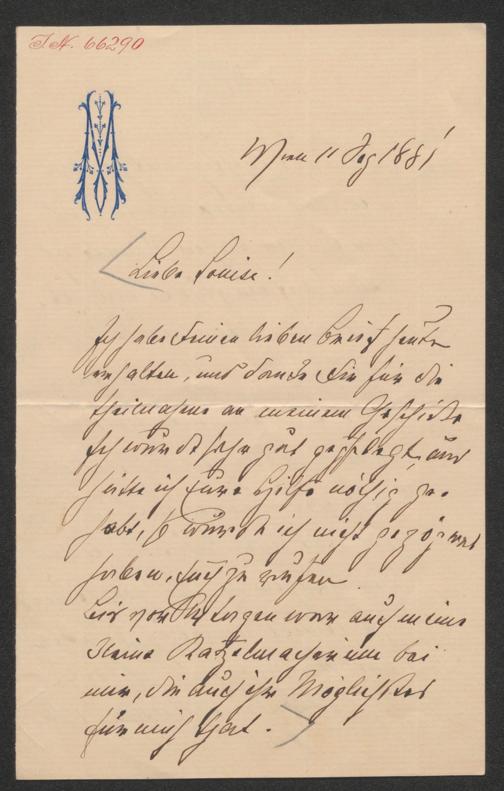 I.N. 66290
Wien 11 1881
Liebe Louise!
Ich habe Deinen lieben Brief heute
erhalten, und danke Dir für die
Theilnahme an meinem Geschicke
Ich wurde sehr gut gepflegt, und
hätte ich Eure Hilfe nöthig ge-
habt, so würde ich nicht gezögert
haben, Euch zu rufen.
Bis vor Tagen war auch meine
kleine Katzelmacherinn bei
mir, die auch ihr Möglichstes
für mich that.